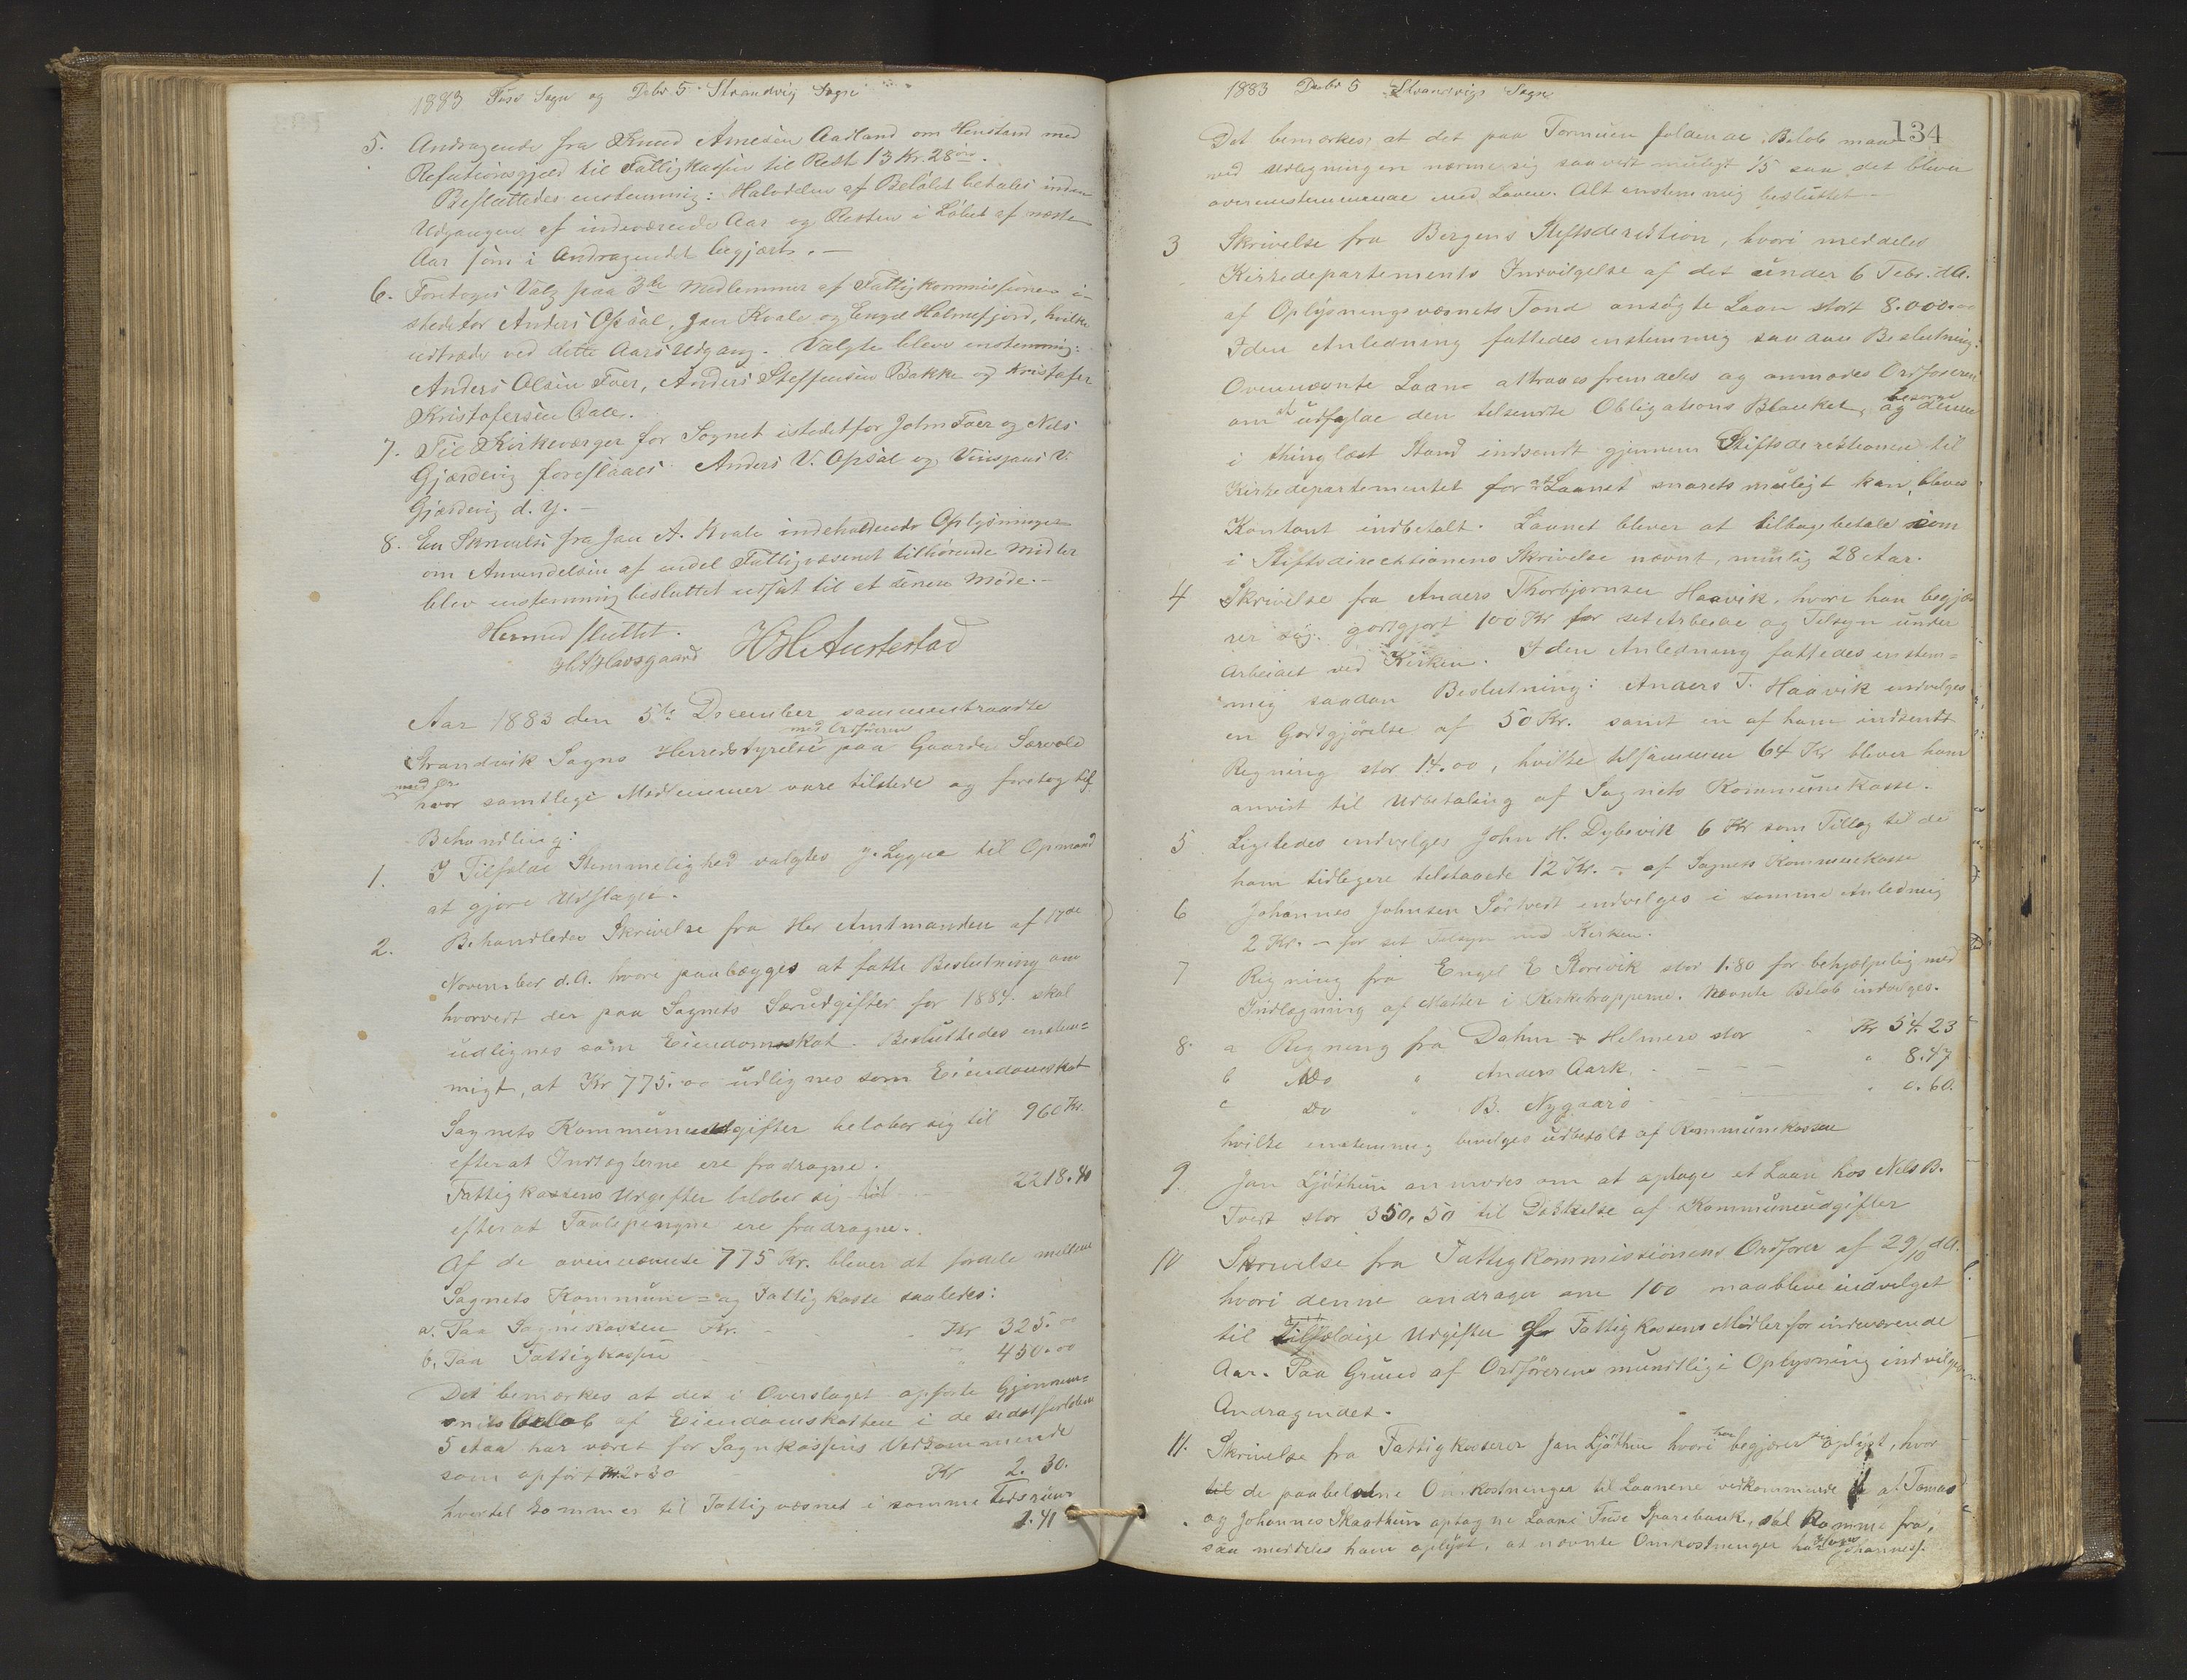 1883 Fuse Sogn og Debr 5 Strandvig Sogn
5. Andragende fra Knud Arnesen Aadland om Henstand med
Refutionsgjeld til Fattigkassen til Rest 13 Kr. 28 øre.
Besluttedes enstemmig: Halvdelen af Beløbet betales inden
Udgangen af indeværende Aar og Resten i Løbet af næste
Aar som i Andragendet begjært. —
6. Foretoges Valg paa 3de Medlemmer af Fattigkommissionen i
stedetfor Anders Opsal, Jan Kvale og Engel Holmefjord, hvilke
udtræde ved dette Aars Udgang. Valgte bleve enstemmig:
Anders Olsen Foer, Anders Steffensen Bakke og Kristofer
Kristofersen Aale.
7. Til Kirkeværger for Sognet istedetfor John Foer og Nils
Gjerdevig foreslaaes Anders V. Opsal og Vinsjans V.
Gjerdevig d. y. —
8. En Skrivelse fra Jan A. Kvale indeholdende Oplysninger
om Anvendelsen af endel Fattigvæsenet tilhørende Midler
blev enstemmig besluttet udsat til et senere Møde. —
Hermed sluttet.
H. Havsgaard HH Austestad
Aar 1883 den 5te December sammentraadte
med Ordføreren
Strandvik Sogns Herredstyrelse paa Gaarden Særvold
hvor samtlige Medlemmer vare tilstede og foretog til
Behandling:
1. I Tilfælde Stemmelighed valgtes J. Lygre til Opmand
at gjøre Udslaget.
2. Behandledes Skrivelse fra Hr Amtmanden af 17de
November d. A. hvori paalægges at fatte Beslutning om
hvorvidt der paa Sognets Særudgifter for 1884 skal
udlignes som Eiendomsskat. Besluttedes enstem=
migt, at Kr 775.00 udlignes som Eiendomskat
Sognets Kommuneudgifter beløber sig til 960 Kr.
efterat Indtægterne ere fradragne.
Fattigkassens Udgifter beløber sig til 2218.40
efterat Taalspengne ere fradragne.
Af de ovennævnte 775 Kr. bliver at fordele mellem
Sognets Kommune= og Fattigkasse saaledes:
a. Paa Sognekassen Kr. Kr 325.00
b. Paa Fattigkassen " 450.00
Det bemærkes at det i Overslaget opførte Gjennem=
snitsbeløb af Eiendomskatten i de sidstforløbne
5 Aar har været for Sognkassens Vedkommende
som opført Kr 2.30 Kr 2.30.
hvortil kommer til Fattigvæsnet i samme Tidsrum
1.41
1883 Debr 5 Strandvigs Sogn
134
Det bemærkes, at det paa Formuen faldende Beløb maa
ved Udlegningen nærme sig saavidt muligt 1/5 saa det bliver
overenstemmende med Loven. Alt enstemmig besluttet —
3 Skrivelse fra Bergens Stiftsderektion, hvori meddeles
Kirkedepartements Indvilgelse af det under 6 Febr. d.A.
af Oplysningsvæsnets Fond ansøgte Laan stort 8.000.00
I den Anledning fattedes enstemmig saadan Beslutning:
Ovennævnte Laan attraaes fremdeles og anmodes Ordføreren
om at udfylde den tilsendte Obligations Blanket, og besørge denne
i thinglæst Stand indsendt gjennem Stiftsderektionen til
Kirkedepartementet for at Laanet snarets muligt kan blive
Kontant indbetalt. Laanet bliver at tilbagebetale som
i Stiftsdirecktionens Skrivelse nævnt, nemlig 28 Aar.
4 Skrivelse fra Anders Thorbjørnsen Haavik, hvori han begjæ
rer sig godtgjort 100 Kr for set Arbeide og Tilsyn under
Arbeidet ved Kirken. I den Anledning fattedes enstem=
mig saadan Beslutning: Anders T. Haavik indvelges
en Godtgjørelse af 50 Kr. samt en af ham indsendt
Regning stor 14.00, hvilke tilsammen 64 Kr bliver ham
anvist til Udbetaling af Sognets Kommunekasse.
5 Ligeledes indvelges John H. Dybsvik 6 Kr som Tillæg til de
ham tidlegere tilstaaede 12 Kr. — af Sognets Kommunekasse
6 Johannes Johnsen Sørtveit indvelges i samme Anledning
2 Kr. — for set Tilsyn med Kirken.
7 Regning fra Engel E Korsvik stor 1.80 for behjælpelig med
Indlægning af Matter i Kirketrapperne. Nævnte Beløb indvelges.
8. a Regning fra Dahm & Helmers stor Kr 54.23
b Do " Anders Aark " 8.47
c Do " B. Nygaard " 0.60.
hvilke enstemmig bevilges udbetalt af Kommunekassen
9 Jan Ljøthun anmodes om at optage et Laan hos Nels B.
Tveit stor 350,50 til Dækkelse af Kommuneudgifter
10 Skrivelse fra Fattigkommissionens Ordfører af 29/10 d A.
hvori denne andrager om 100 maa blive indvelget
til tilfældige Udgifter af Fattigkassens Midler for indeværende
Aar. Paa Grund af Ordførerens mundtlige Oplysning indvilges
Andragendet.
11. Skrivelse fra Fattigkasserer Jan Ljøthun hvori han begjærer oplyst, hvor
til de paabeløbne Omkostninger til Laanene vedkommende af Tomas
og Johannes Skaathun optagne Laan i Fuse Sparebank, skal komme fra,
saa meddeles ham oplyst, at nævnte Omkostninger har Johannes